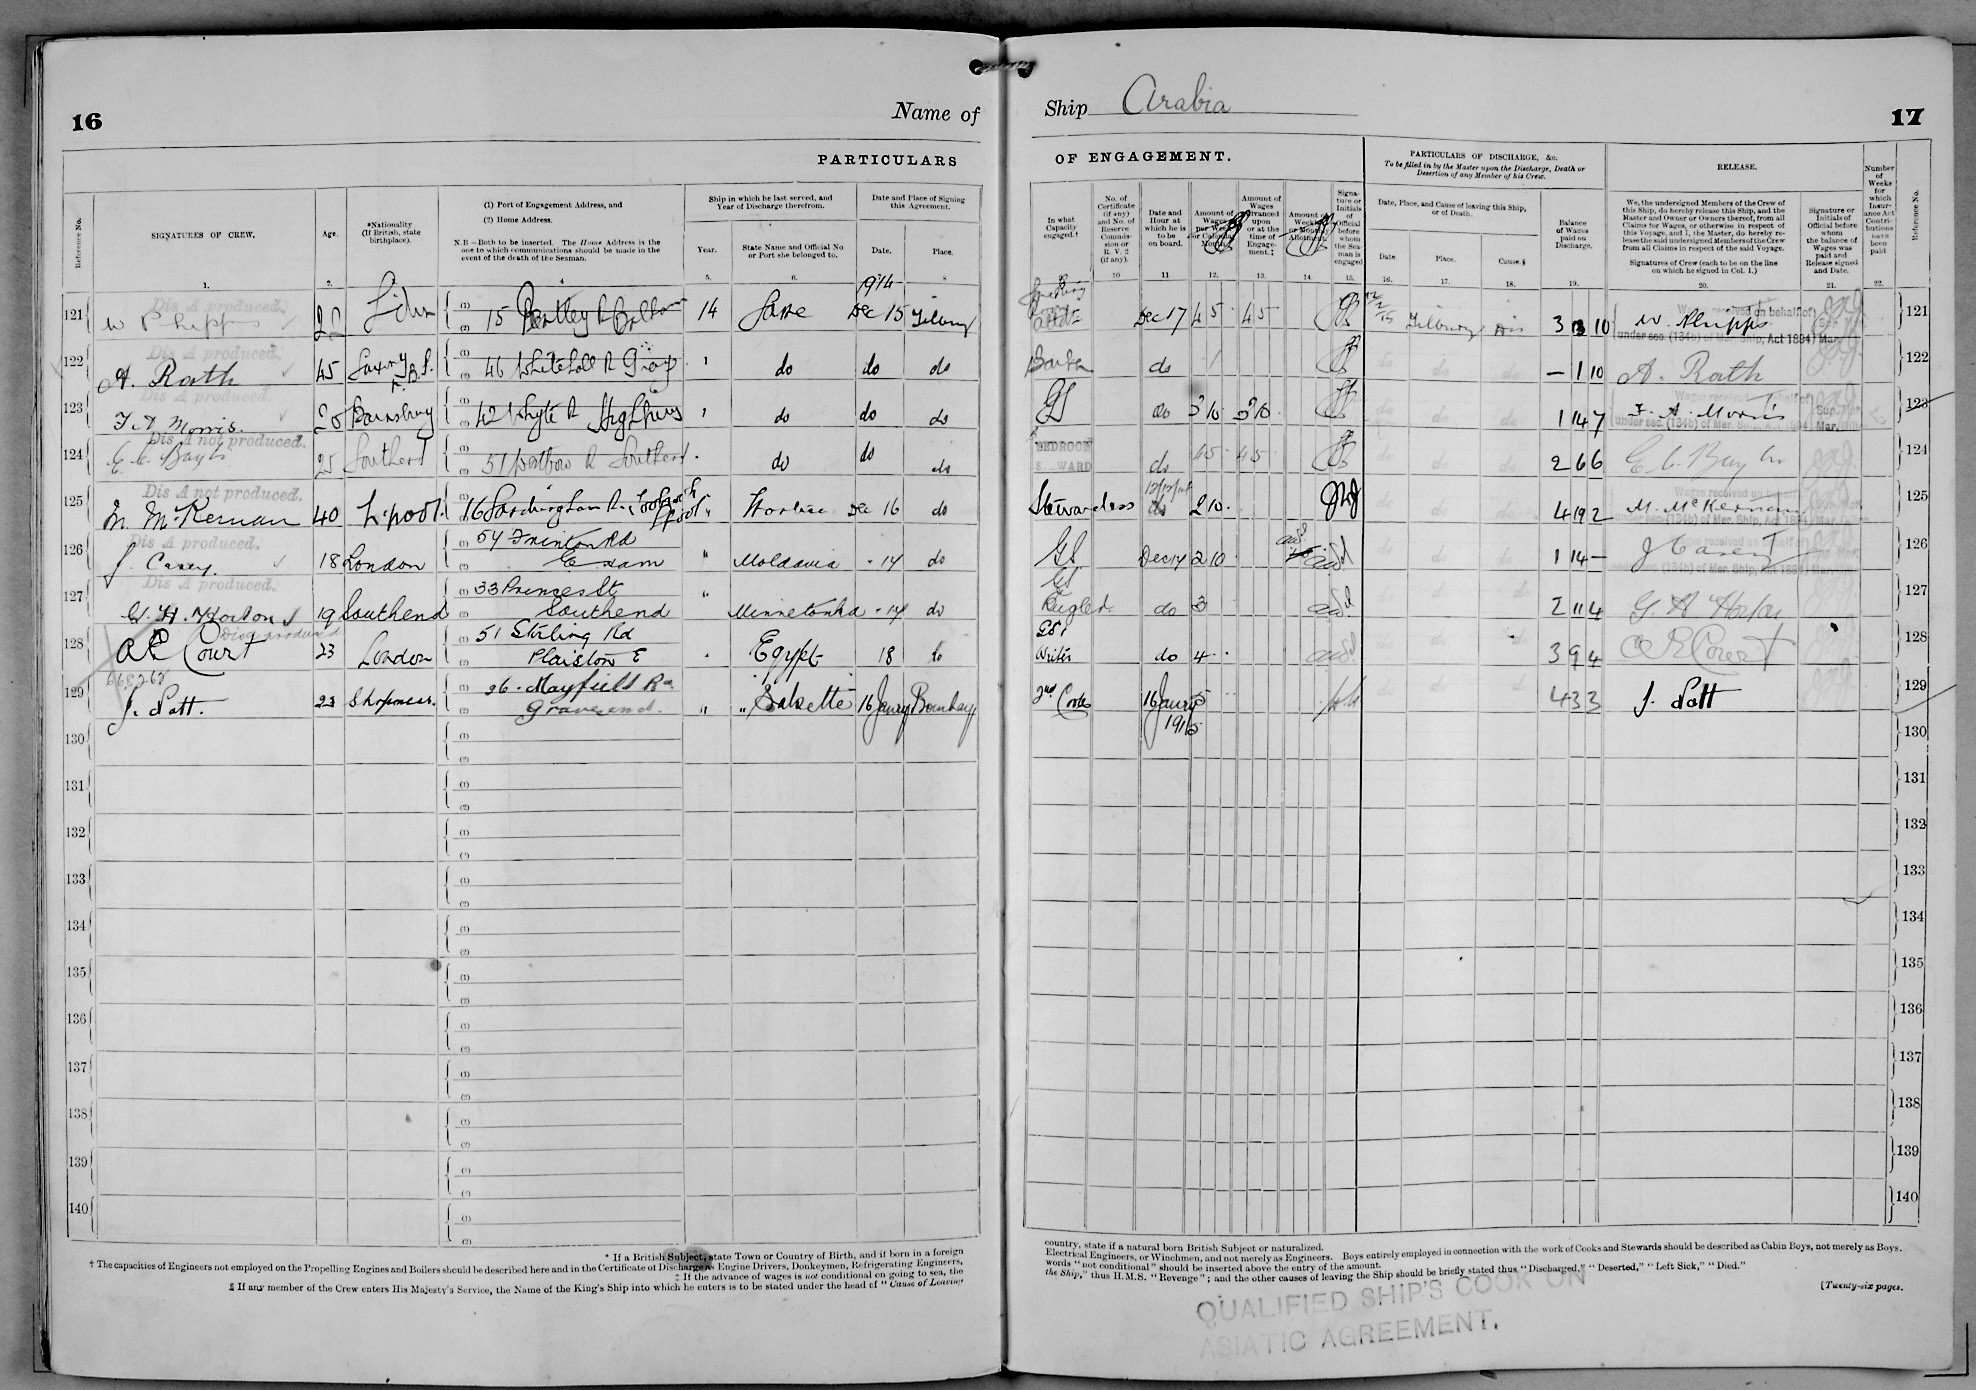 16
Name of
PARTICULARS
Reference No.
SIGNATURES OF CREW.
Age.
*Nationality
(If British, state
birthplace).
(1) Port of Engagement Address, and
(2) Home Address.
N.B.—Both to be inserted. The Home Address is the
one to which communications should be made in the
event of the death of the Seaman.
Ship in which he last served, and
Year of Discharge therefrom.
Year.
State Name and Official No.
or Port she belonged to.
Date and Place of Signing
this Agreement.
Date.
Place.
1. 2. 5. 6. 8
1914
121 Dis A produced. 15 14 Same Dec 15 Tilbury
122 Dis A produced. A. Rath 45 Saxony 46 Whitehall R Grays do do do
123 Dis A produced. F A Morris. Barnsbury 42 Whyte R do do do
124 Dis A not produced. 25 Southend 51 R Southend do do do
125 Dis A not produced. M. McKernan 40 L'pool. 16 Dec 16 do
126 Dis A produced. J. Casey. 18 London 54 Frinton Rd
E Ham " Moldavia " 14 do
127 Dis A produced. G. H. Horton 19 Southend 33 Princes St
Southend " Minnetonka " 14 do
128 A E Court 23 London 51 Stirling Rd
Plaistow E Egypt 18 do
129 J. Patt. 23 Sheerness. 26. Mayfield Rd.
Gravesend. " " Salsette 16 Jany Bombay
130
131
132
133
134
135
136
137
138
139
140
* If a British Subject, state Town or Country of Birth, and if born in a foreign
† The capacities of Engineers not employed on the Propelling Engines and Boilers should be described here and in the Certificate of Discharge as Engine Drivers, Donkeymen, Refrigerating Engineers,
‡ If the advance of wages is not conditional on going to sea, the
§ If any member of the Crew enters His Majesty's Service, the Name of the King's Ship into which he enters is to be stated under the head of "Cause of Leaving
Ship Arabia
17
OF ENGAGEMENT.
PARTICULARS OF DISCHARGE, &c.
To be filled in by the Master upon the Discharge, Death or
Desertion of any Member of his Crew.
RELEASE.
In what
Capacity
engaged.†
No. of
Certificate
(if any)
and No. of
Reserve
Commis-
sion or
R. V. 2
(if any).
Date and
Hour at
which he is
to be
on board.
Amount of
Wages
per Week
or Calendar
Month.
Amount of
Wages
Advanced
upon
or at the
time of
Engage-
ment.‡
Amount of
Weekly
or Monthly
Allotment.
Signa-
ture or
Initials
of
Official
before
whom
the Sea-
man is
engaged
Date, Place, and Cause of leaving this Ship,
or of Death.
Date
Place.
Cause.§
Balance
of Wages
paid on
Discharge.
We, the undersigned Members of the Crew of
this Ship, do hereby release this Ship, and the
Master and Owner or Owners thereof, from all
Claims for Wages, or otherwise in respect of
this Voyage, and I, the Master, do hereby re-
lease the said undersigned Members of the Crew
from all Claims in respect of the said Voyage.
Signatures of Crew (each to be on the line
on which he signed in Col. 1.)
Signature or
Initials of
Official before
whom
the balance of
Wages was
paid and
Release signed
and Date.
Number
of
Weeks
for
which
Insur-
ance Act
Contri-
butions
have
been
paid
Reference No.
10 11 12. 13. 14. 15. 16. 17. 18. 19. 20. 21. 22.
Dec 17 4 5 4 5 Tilbury Dis 3 13 10 W. Phipps 121
do do do do — 1 10 A. Rath 122
GS do 3 10 3 10 do do do 1 14 7 F. A. Morris 123
BEDROOM do 4 5 4 5 do do do 2 6 6 124
Stewardess do 2 10 do do do 4 19 2 M. McKernan 125
GS Dec 14 2 10 do do do 1 14 — J Casey 126
GS
Bugler do 3 do do do 2 11 4 G. H. Horton 127
GS
Writer do 4 do do do 3 9 4 A E Court 128
2nd Cook 16 Jany 5 do do do 4 3 3 J. Patt 129
1915
130
131
132
133
134
135
136
137
138
139
140
country, state if a natural born British Subject or naturalized.
Electrical Engineers, or Winchmen, and not merely as Engineers. Boys entirely employed in connection with the work of Cooks and Stewards should be described as Cabin Boys, not merely as Boys.
words "not conditional" should be inserted above the entry of the amount.
the Ship," thus H.M.S. "Revenge"; and the other causes of leaving the Ship should be briefly stated thus "Discharged," "Deserted," "Left Sick," "Died."
[Twenty-six pages.
QUALIFIED SHIP'S COOK ON
ASIATIC AGREEMENT.